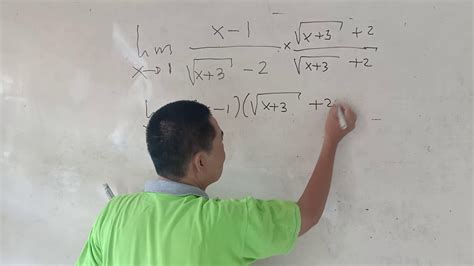 lim x→1 (x-1)/(√(x+3) -2) × (√(x+3) +2)/(√(x+3) +2)
-1)(√(x+3) +2